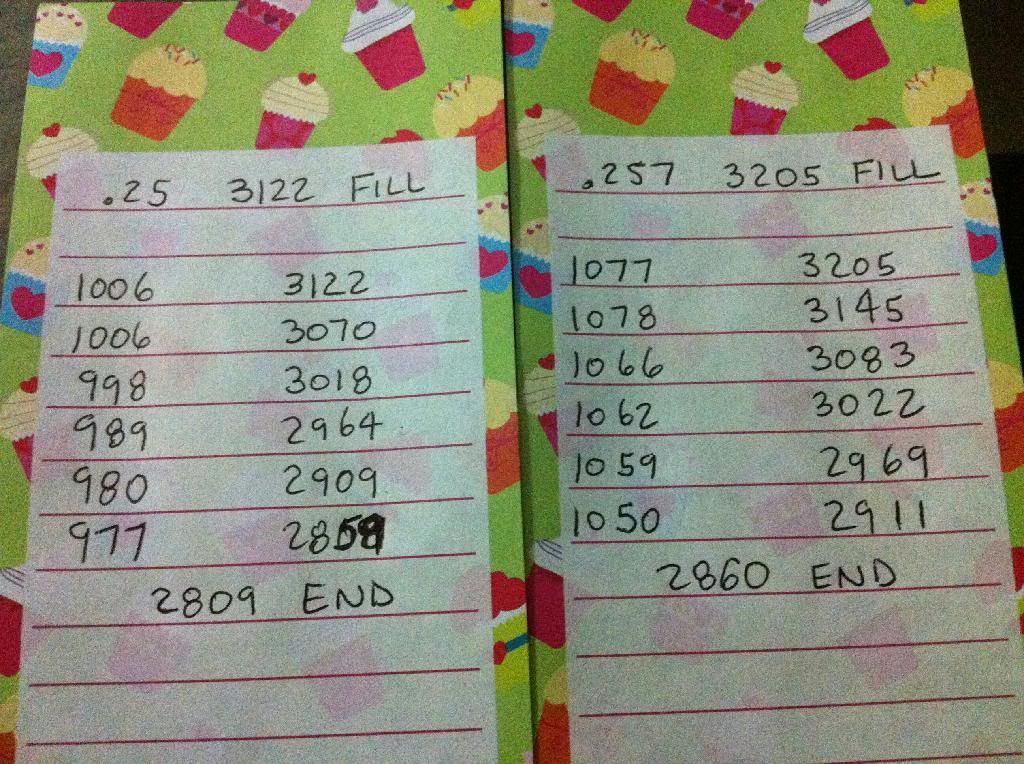 .25 3122 FILL
1006 3122
1006 3070
998 3018
989 2964
980 2909
977 2859
2809 END
.257 3205 FILL
1077 3205
1078 3145
1066 3083
1062 3022
1059 2969
1050 2911
2860 END